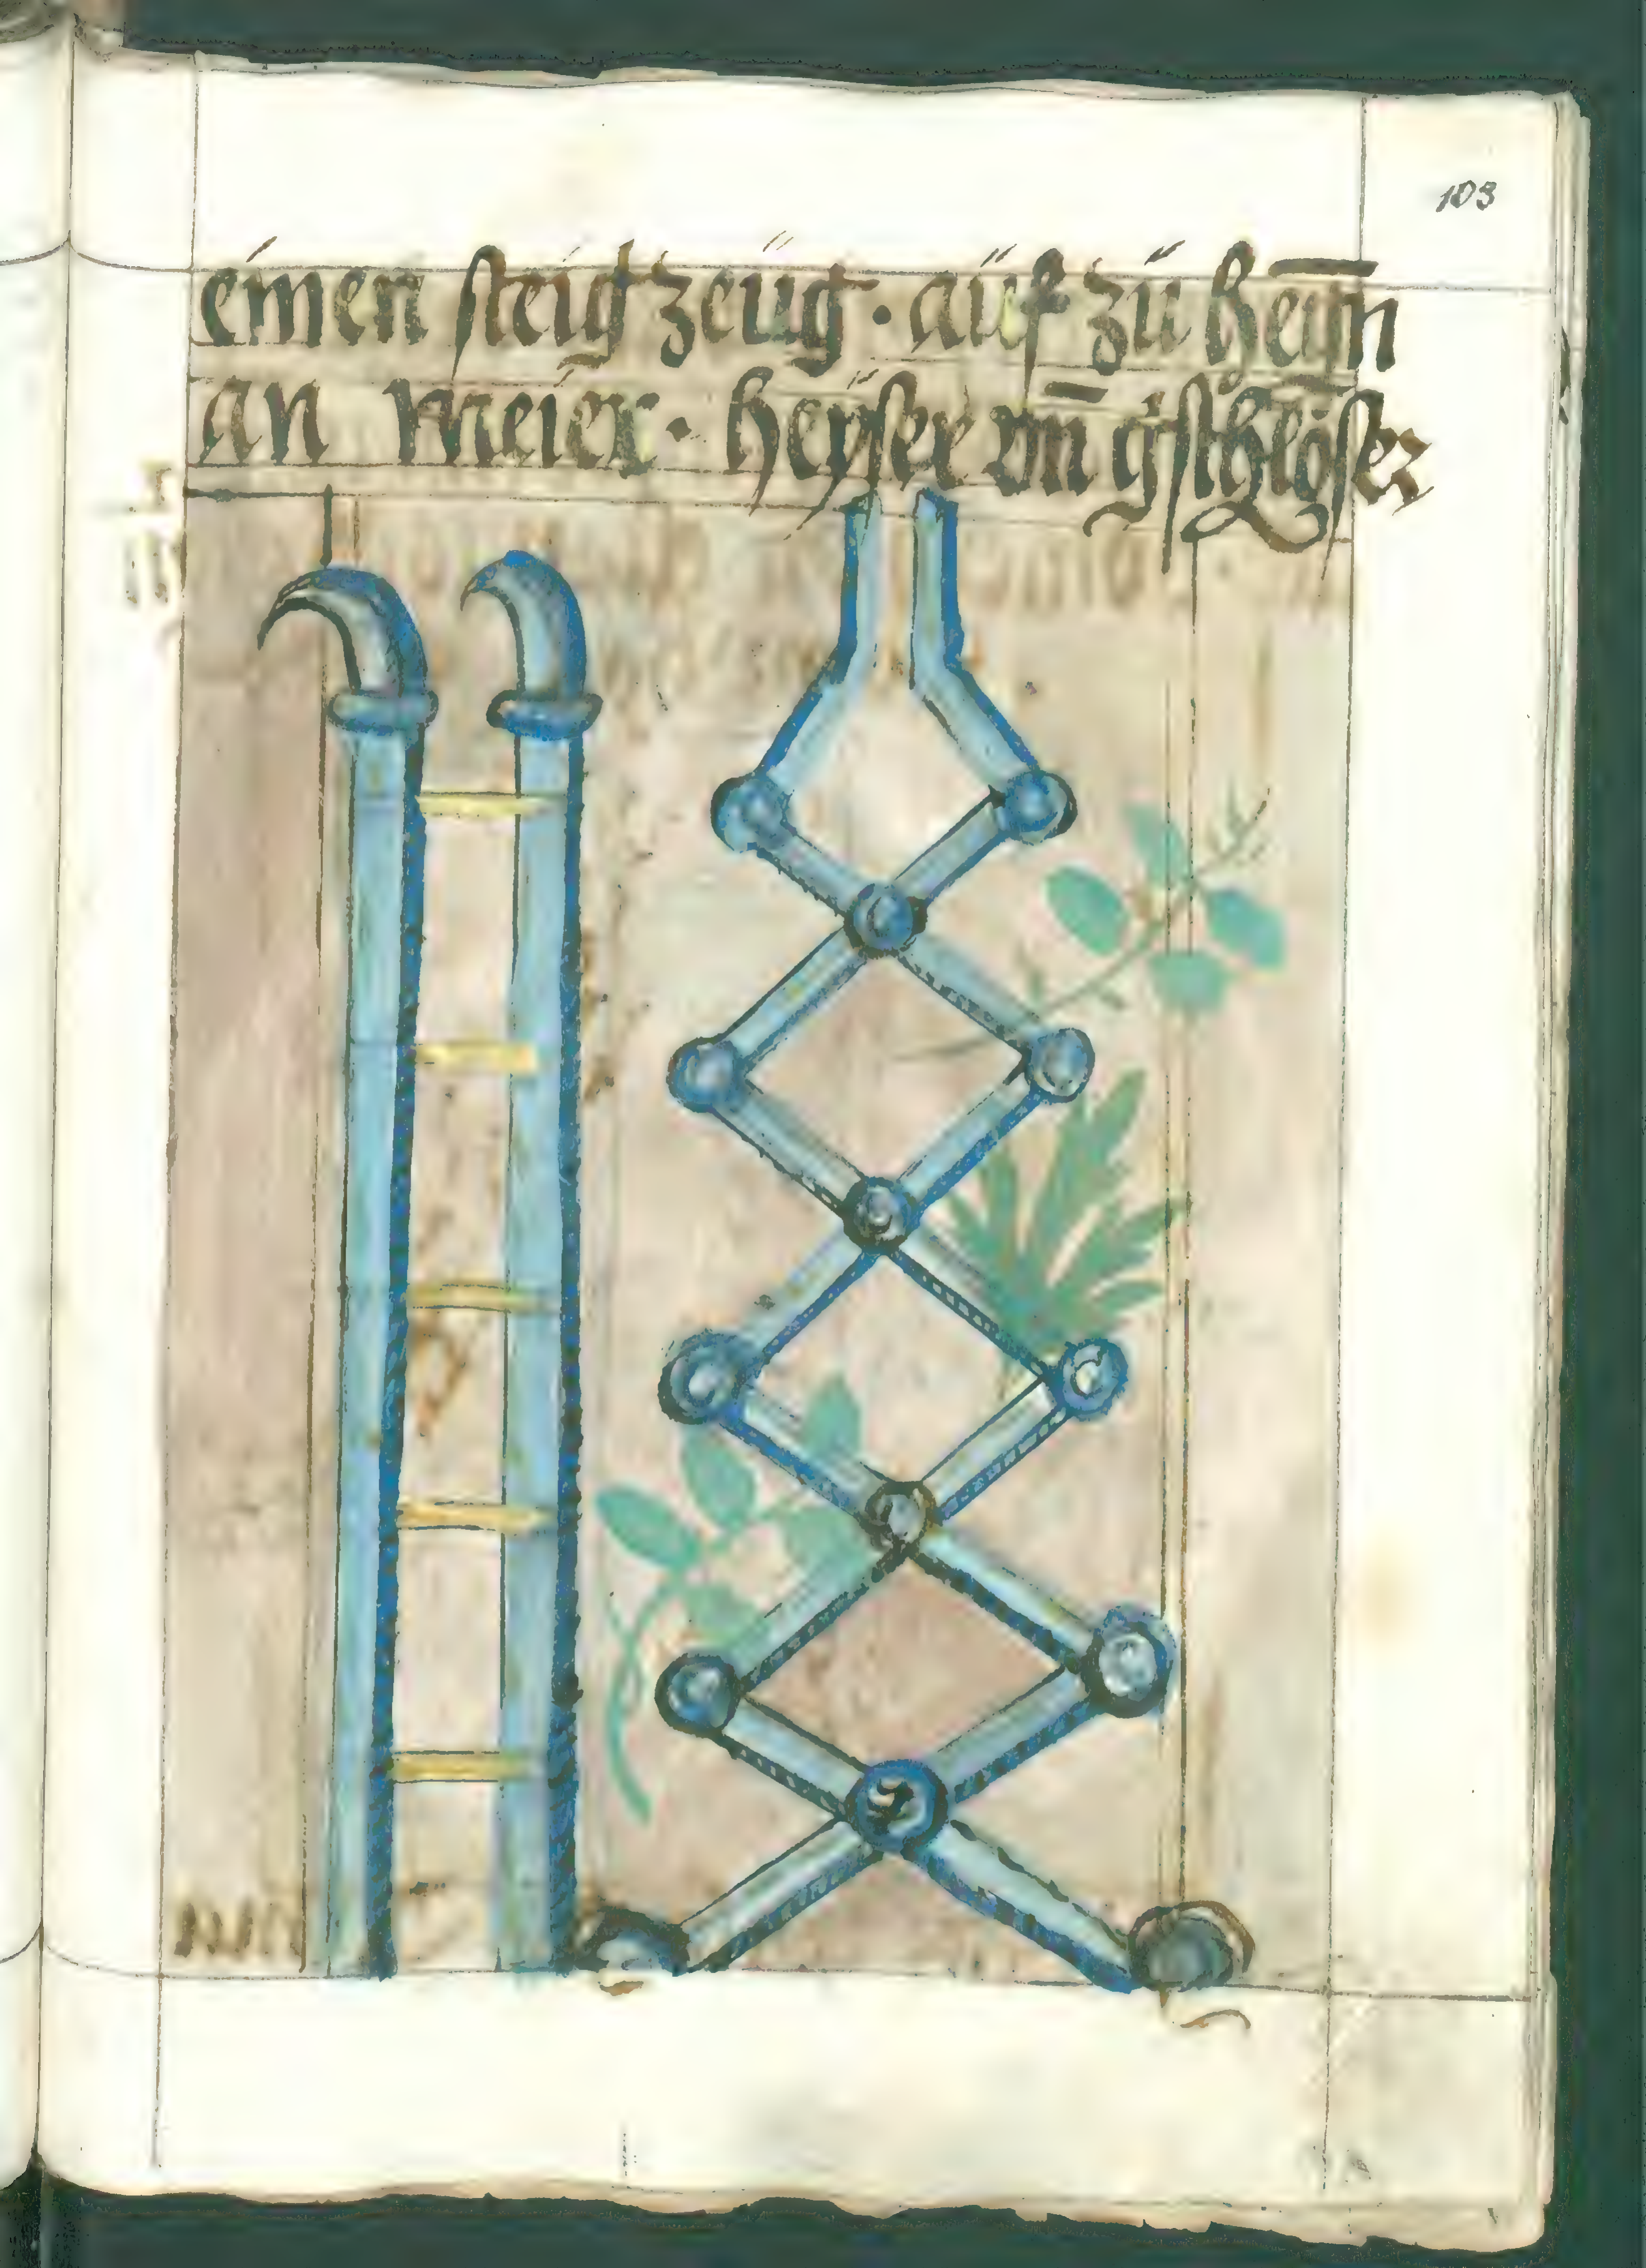 103
einen steigzeüg · aüf zü heȳn
an meier · heyser vn̄ gschlöser